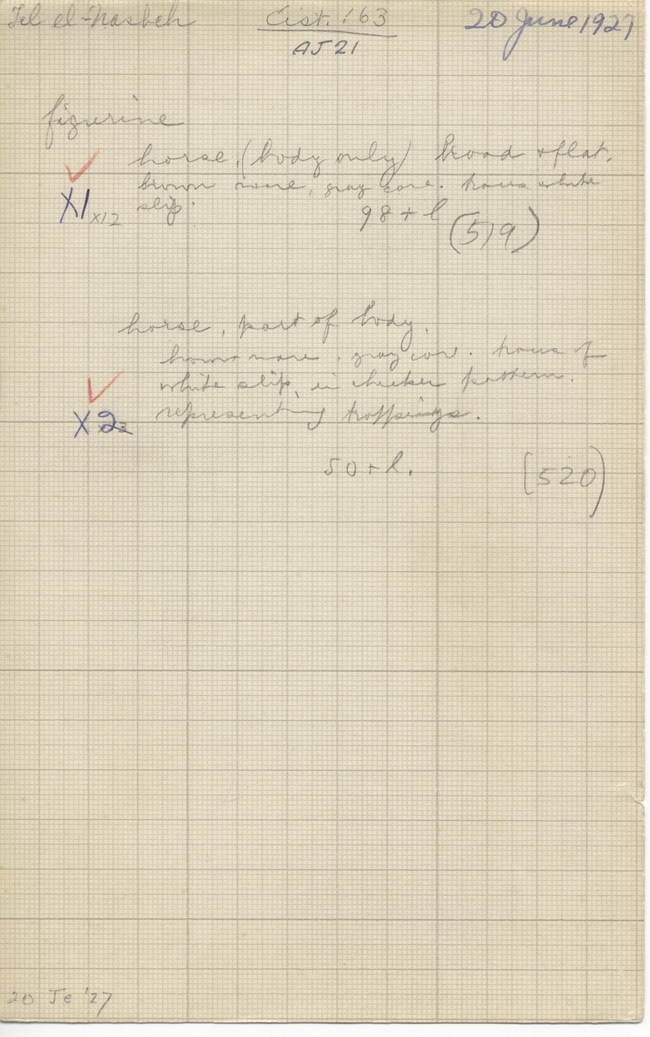 Tel el-Nasbeh Cist. 163 20 June 1927
AJ 21
figurine
horse, (body only) broad + flat.
brown ware, gray core. traces white
slip.
X1 x12
98 + l (519)
horse, part of body.
brown ware, gray core. traces of
white slip, in checker pattern.
X2 representing trappings.
50 + l. (520)
20 Je '27